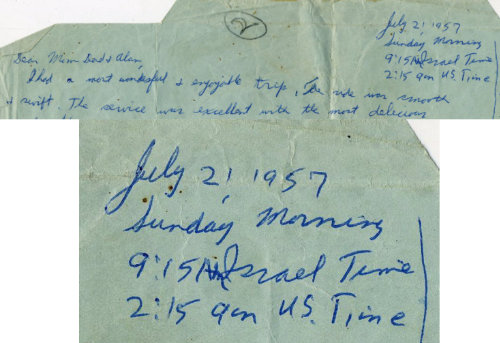 2
July 21, 1957
Sunday Morning
9:15 AM Israel Time
2:15 am U.S. Time
Dear Mom Dad & Alan,
I had a most wonderful & enjoyable trip. The ride was smooth
& swift. The service was excellent with the most delicious
July 21, 1957
Sunday Morning
9:15 AM Israel Time
2:15 am U.S. Time